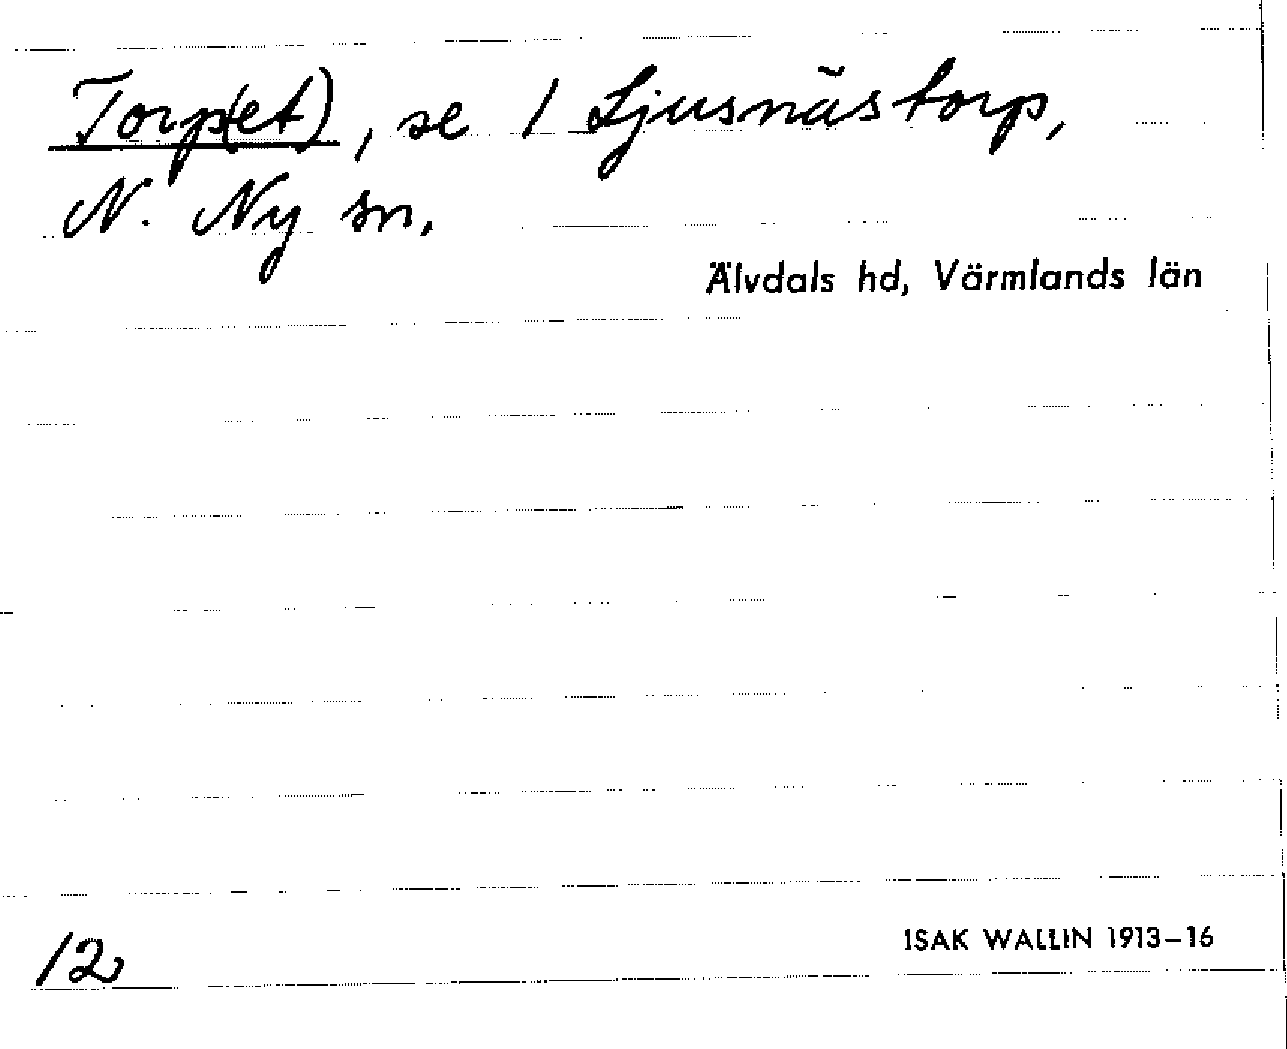 Torp(et), se 1 Ljusnästorp,
N. Ny sn,
Älvdals hd, Värmlands län
12
ISAK WALLIN 1913–16